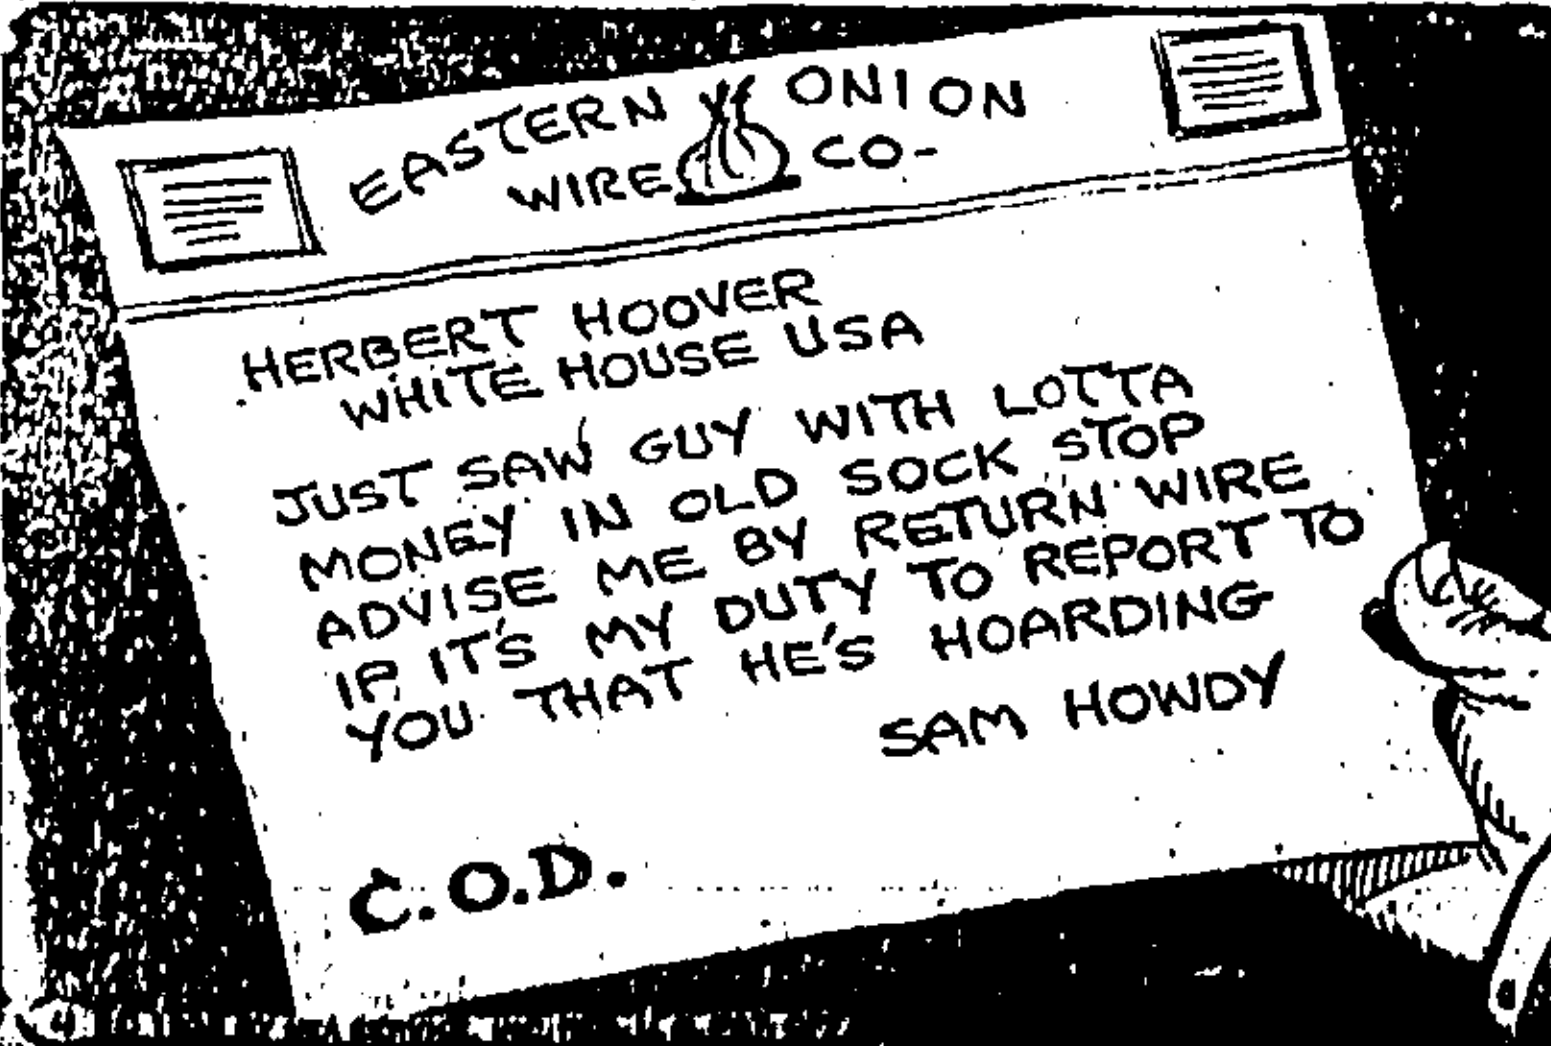 EASTERN ONION
WIRE CO-
HERBERT HOOVER
WHITE HOUSE USA
JUST SAW GUY WITH LOTTA
MONEY IN OLD SOCK STOP
ADVISE ME BY RETURN WIRE
IF IT'S MY DUTY TO REPORT TO
YOU THAT HE'S HOARDING
SAM HOWDY
C.O.D.